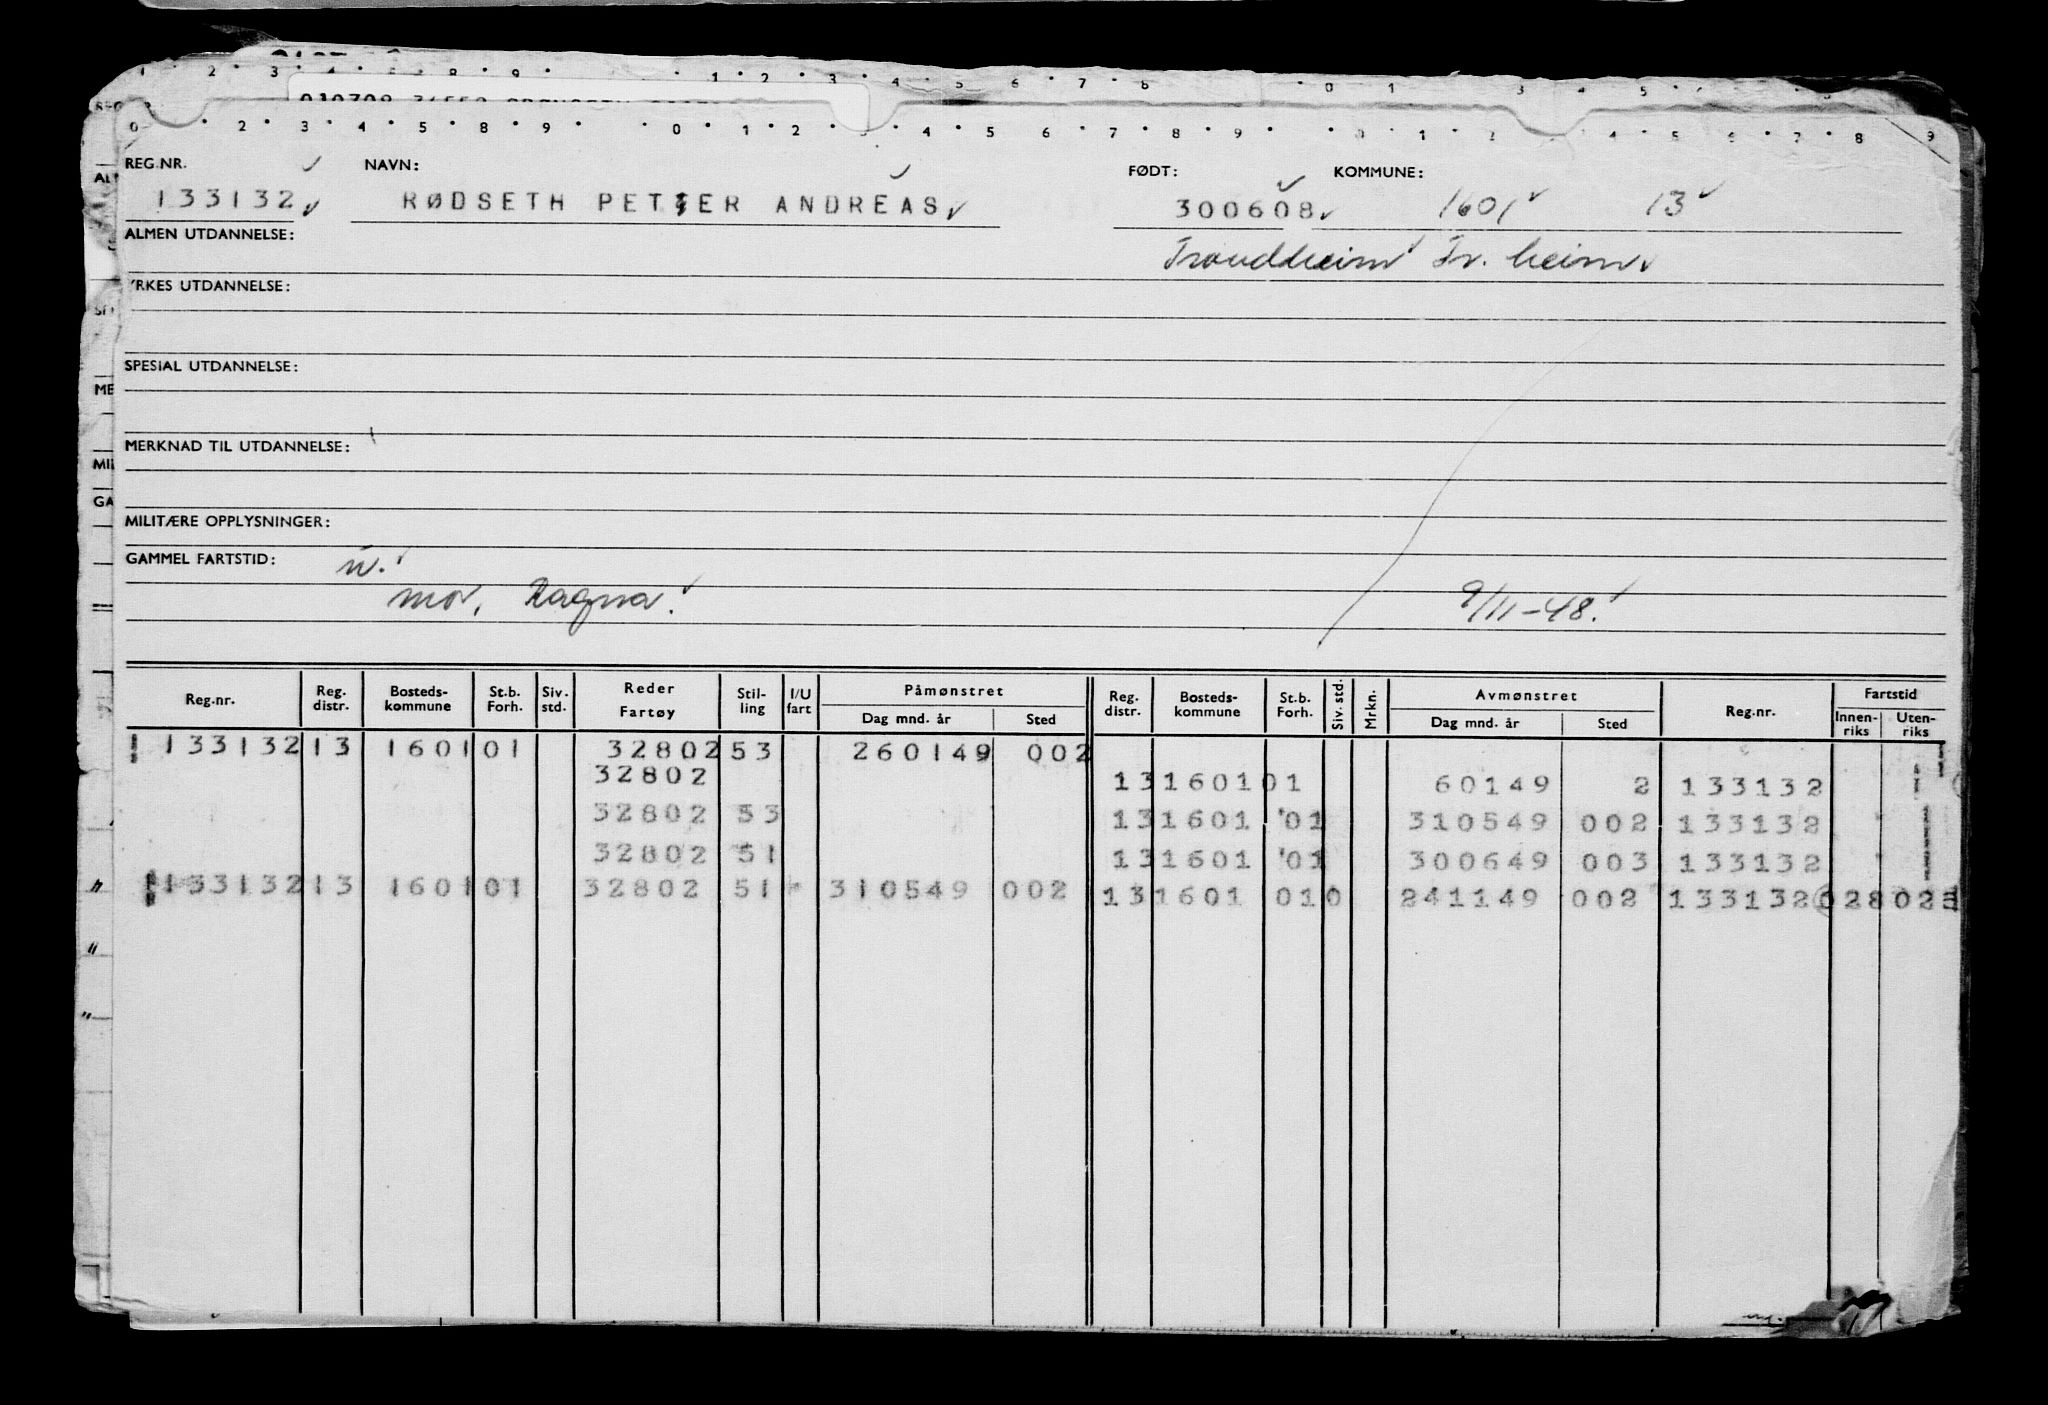 REG.NR. NAVN: FØDT: KOMMUNE:
133132 RØDSETH PETTER ANDREAS 300608 1601 13
ALMEN UTDANNELSE: Trondheim Tr. heim
YRKES UTDANNELSE:
SPESIAL UTDANNELSE:
MERKNAD TIL UTDANNELSE:
MILITÆRE OPPLYSNINGER:
GAMMEL FARTSTID:
mor, Ragna. 9/11-48.
Reg.nr. Reg. distr. Bosteds-kommune St.b. Forh. Siv. std. Reder Fartøy Stil-ling I/U fart Påmønstret Dag mnd. år Sted Reg. distr. Bosteds-kommune St.b. Forh. Siv. std. Mrkn. Avmønstret Dag mnd. år Sted Reg.nr. Fartstid Innen-riks Uten-riks
133132 13 1601 01 32802 53 260149 002
32802 13 1601 01 60149 2 133132
32802 53 13 1601 01 310549 002 133132
32802 51 13 1601 01 300649 003 133132
133132 13 1601 01 32802 51 310549 002 13 1601 01 0 241149 002 133132 028 02